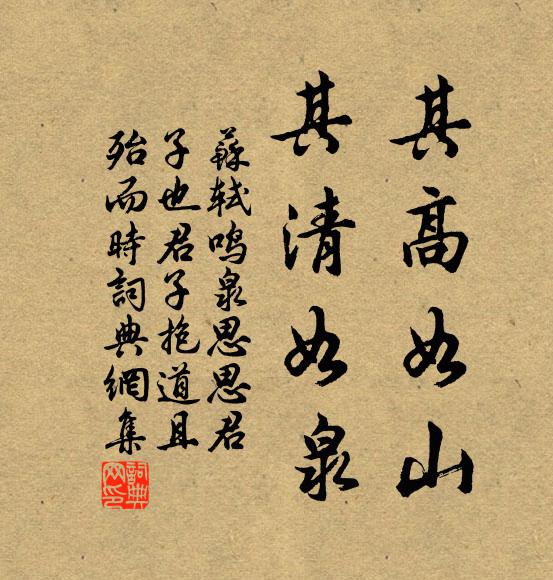 其高如山
其清如泉
蘇軾鳴泉思思君
子也君子抱道且
殆而時詞典網集
詞典
网印